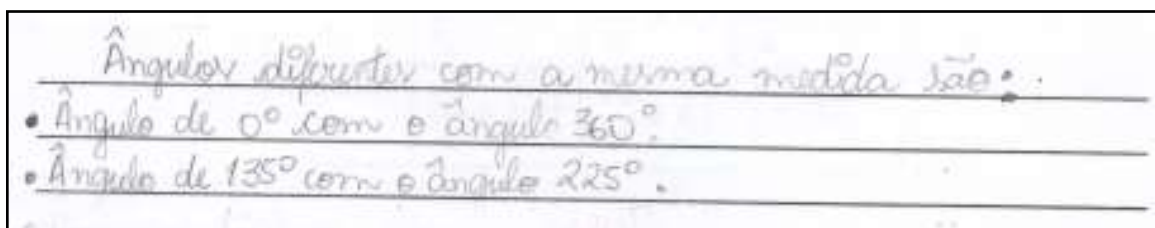 Ângulos diferentes com a mesma medida são:
• Ângulo de 0° com o ângulo 360°.
• Ângulo de 135° com o ângulo 225°.